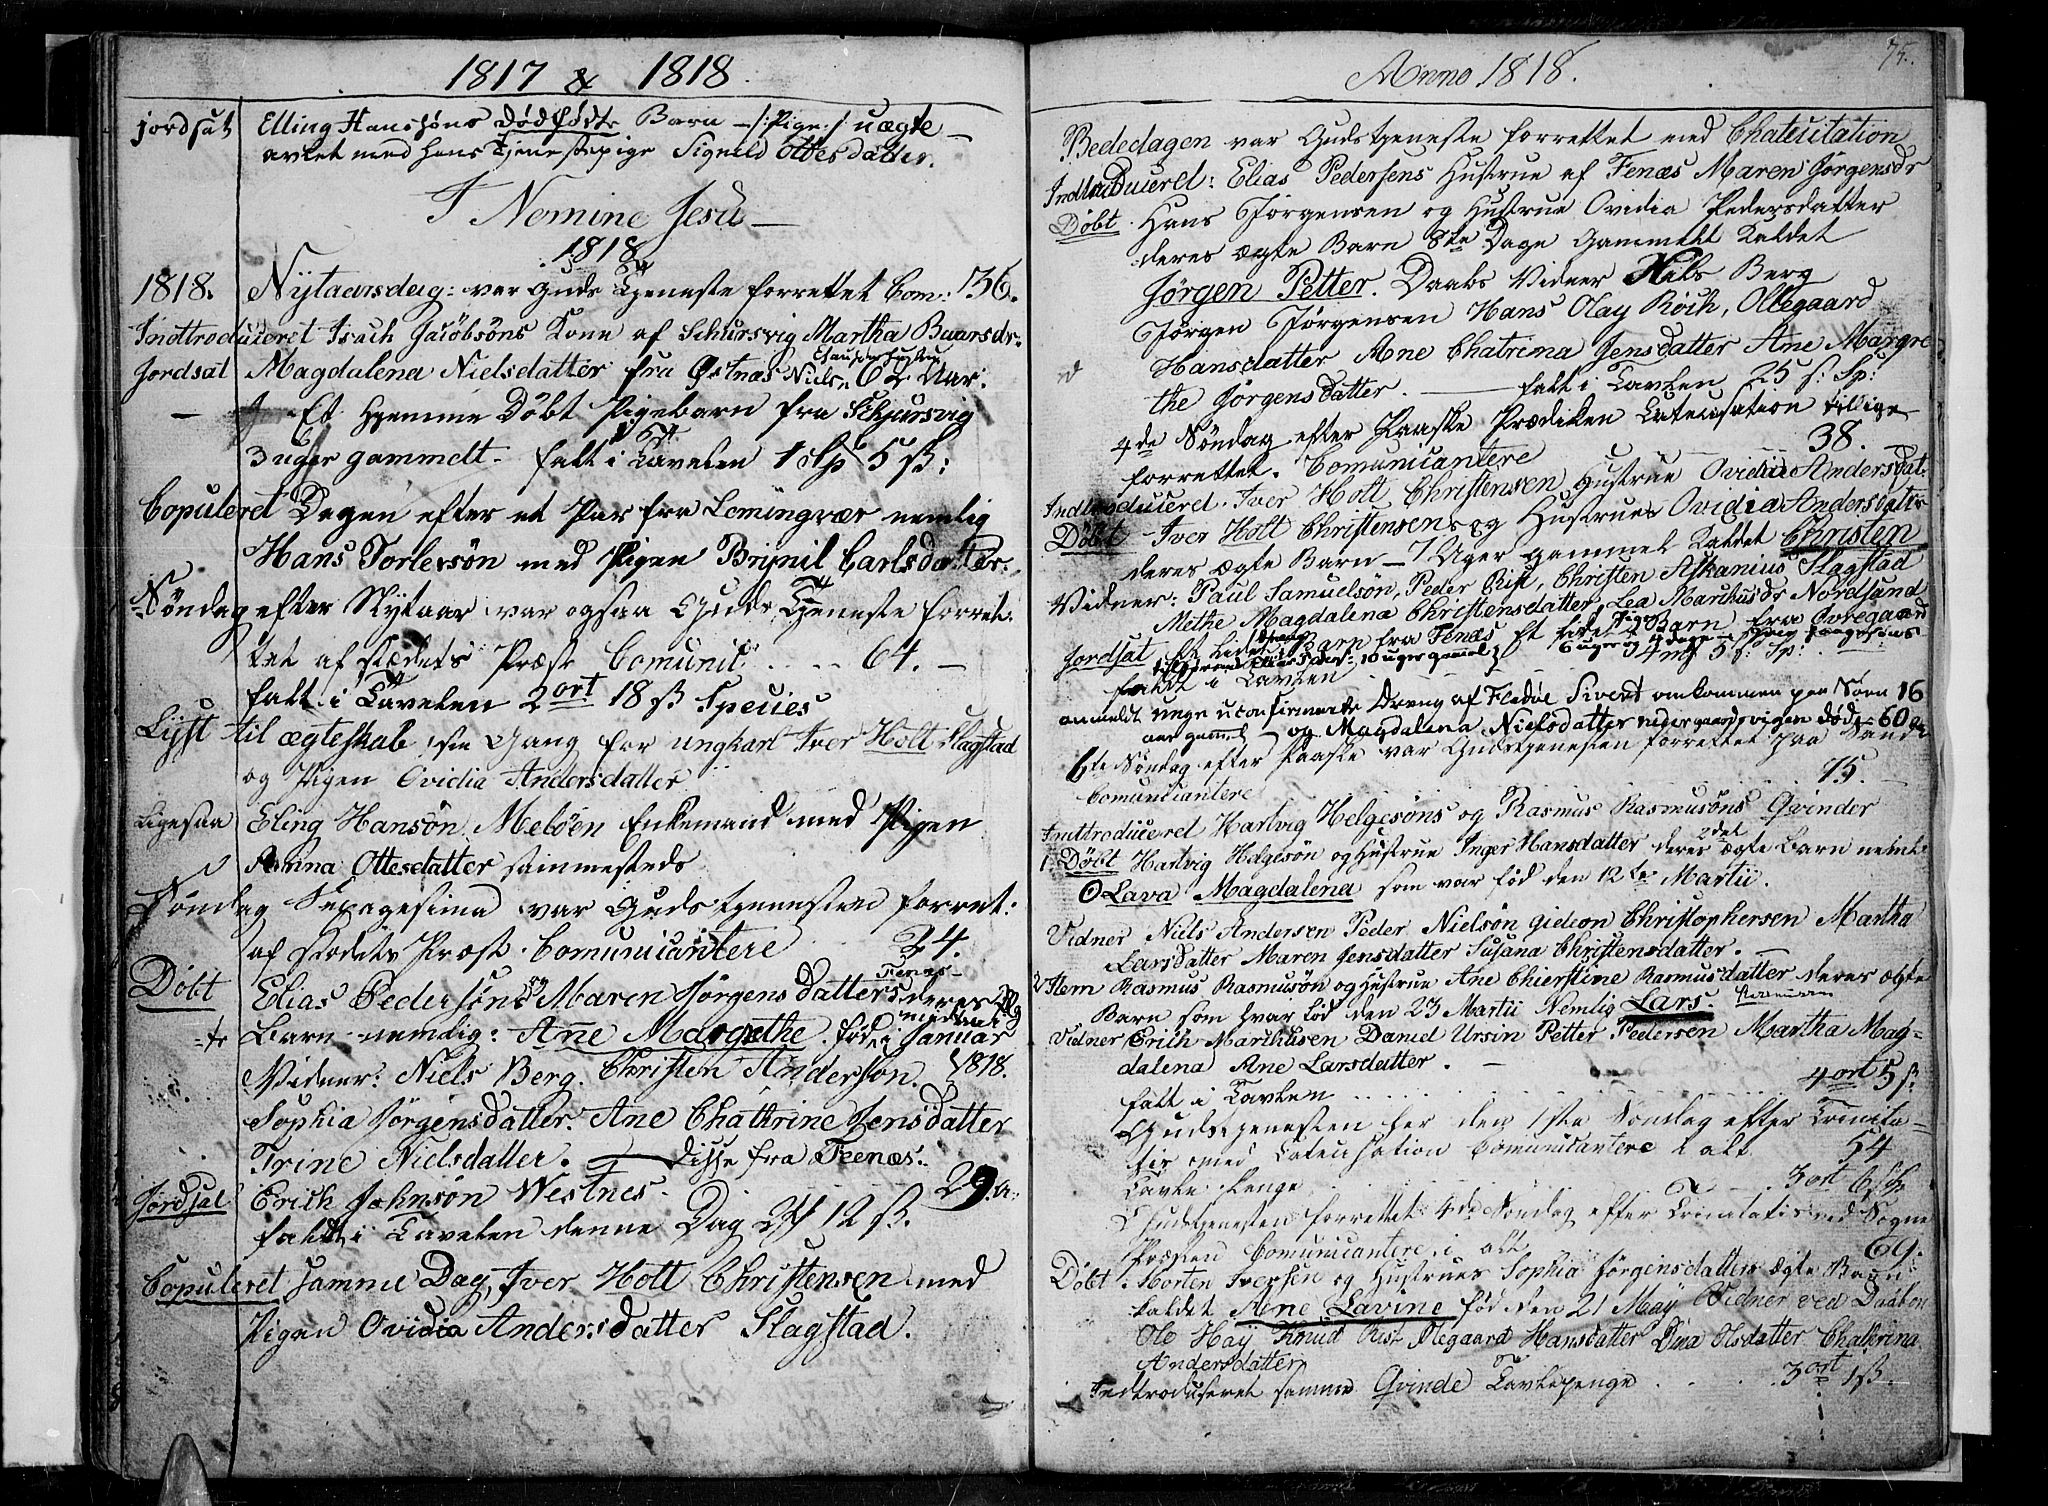 1817 & 1818.
jordsat Elling Hanssøns Dødfødte Barn — /: Pige :/ uægte —
avlet med hans Tjenestepige Signeld Ottesdatter.
I Nomine Jesu —
1818
1818. Nytaarsdag: var Guds Tjeneste forrettet Com: 136.
Indtroduceret Isach Jacobsöns Kone af Schursvig Martha Baarsdr
Jordsat Magdalena Nielsdatter fra Østnæs Niels 62 Aar.
— Et hjemme Døbt Pigebarn fra Schjursvig
3 uger gammelt — falt i Tavelen 1 5 ß:
Copuleret Dagen efter et Par fra Lemingvær nemlig
Hans Torlersön med Pigen Brynil Carlsdatter.
Søndag efter Nytaar var ogsaa Guds Tjeneste forret:
tet af stædets Præst Comunic .... 64. —
falt i Tavelen 2 ort 18 ß Species
Lyst til ægteskab 1ste Gang for ungkarl Iver Holt Slagstad
og Pigen Ovidia Andersdatter
Ligesaa Eling Hansön Meløen Enkemand med Pigen
Anna Ottesdatter sammesteds
Søndag Sepagesima var Gudstjenesten forret:
af stædets Præst. Comunicantere 24.
Døbt Elias Pedersøns og Maren Jørgensdatters Fenes deres
Barn nemlig: Ane Margrethe. født i Januar
Vidner: Niels Berg. Christen Anderson. 1818.
Sophia Jørgensdatter. Ane Chathrine Jensdatter
Trine Nielsdatter. — Disse fra Feenæs.
Jordsat Erich Johnsön Westnes. 29. a:
faldt i Tavelen denne Dag 12 ß.
Copuleret samme Dag, Iver Holt Christensen med
Pigen Ovidia Andersdatter Slagstad.
Anno 1818.
75.
Bededagen var Gudstjeneste forrettet med Chatecitation
Indtroduceret: Elias Pedersens Hustrue af Fenæs Maren Jørgensdr
Døbt. Hans Jørgensen og Hustrue Ovidia Pedersdatter
deres ægte Barn 8te Dage Gammelt Kaldet
Jørgen Petter. Daabs Vidner Niels Berg
Jørgen Jørgensen Hans Olay Röch, Ollegaard
Hansdatter Ane Chatrina Jensdatter Ane Margre
the Jørgensdatter. — falt i Tavlen 25 s: sp:
4de Søndag efter Paaske Prædiken Catecisation tillige
forrettet. Comunicantere 38.
Indtroduceret. Iver Holt Christensen Hustrue Ovidia Andersdat:
Døbt Iver Holt Christensen og Hustrues Ovidia Andersdatr
deres ægte Barn — 7 Uger gammel Kaldet Christen
Vidner: Paul Samuelsøn, Peder Rist, Christen Askanius Slagstad
Methe Magdalena Christensdatter, Lea Marthusdr Nordsand
Jordsat Et lidet Barn fra Fenæs Et lidet Pige Barn fra Ovregaard
10 uger gammel 6 uger og 4 dage
faldt i Tavlen 4 5 s: sp:
anmeldt unge uconfirmerte Dreng af Sivert omkommen paa Søen 16
aar gammel og Magdalena Nielsdatter nedergaardsvigen døde 60 a
6te Søndag efter Paaske var Gudstjenesten forrettet paa Sand
Comunicantere 75.
Inttroducered Hartvig Helgesöns og Rasmus Rasmusöns Qvinder
1. Døbt Hartvig Helgesön og Hustrue Inger Hansdatter deres 2det ægte Barn neml:
Lava Magdalena som var fød den 12te Martii.
Vidner Niels Andersen Peder Nielsön Gideon Christophersen Martha
Larsdatter Maren Jensdatter Susana Christensdatter. —
2 Item Rasmus Rasmusön og Hustrue Ane Chierstine Rasmusdatter deres ægte
Barn som hvar fød den 23 Martii Nemlig Lars.
Vidner Erich Marthusen Daniel Ursin Petter Pedersen Martha Mag-
dalena Ane Larsdatter. —
falt i Tavlen ...... 4 ort 5 ß.
Gudstjenesten her den 1ste Søndag efter Trinita-
tis med Catecisation Comunicantere i alt 54
Tavle Penge ...... 3 ort 6
Gudstjenesten forrettet 4de Søndag efter Trinitatis ved Sogne
Præsten Comunicantere i alt 69.
Døbt: Morten Iversen og Hustrues Sophia Jørgensdatters ægte Barn
kaldet Ane Lavine fød den 21 Maÿ Vidner ved Daaben
Ole Haÿ Knud Rist Olegaard Hansdatter Dina Olsdatter Chathrina
Andersdatter
Indtroduseret samme Qvinde Tavlepenge ...... 3 ort 1 ß.